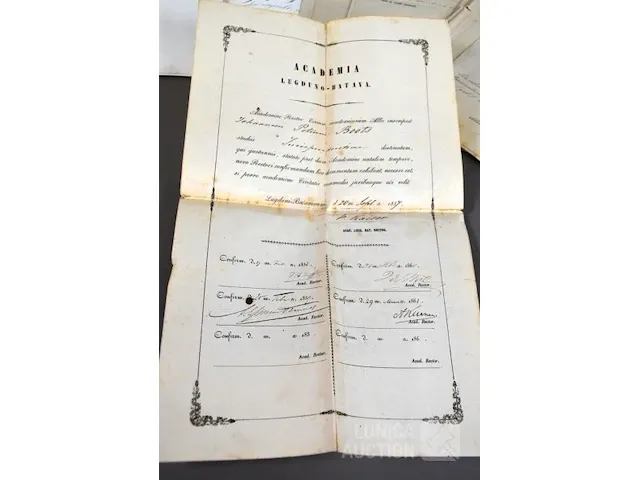 ACADEMIA
LUGDUNO-BATAVA.
Academiae Rector Civium academicorum Albo inscripsit
Johannem Petrum Boots
studiis Jurisprudentiae destinatum,
qui quotannis, statuto post diem Academiae natalem tempore,
novo Rectori confirmandum hoc documentum exhibeat, necesse est,
si porro academicae Civitatis commodis juribusque uti velit
Lugduni-Batavorum d. 20 m Sept a. 1857
Kaiser
ACAD. LUGD. BAT. RECTOR.
Confirm. d. m a. 185
Acad. Rector.
Confirm. d. m a. 186
Acad. Rector.
Confirm. d. m a. 185
Acad. Rector.
Confirm. d. 29 m a. 1861
Acad. Rector.
Confirm. d. m. a. 185
Acad. Rector.
Confirm. d. m a. 186
Acad. Rector.
EUNICA
AUCTION